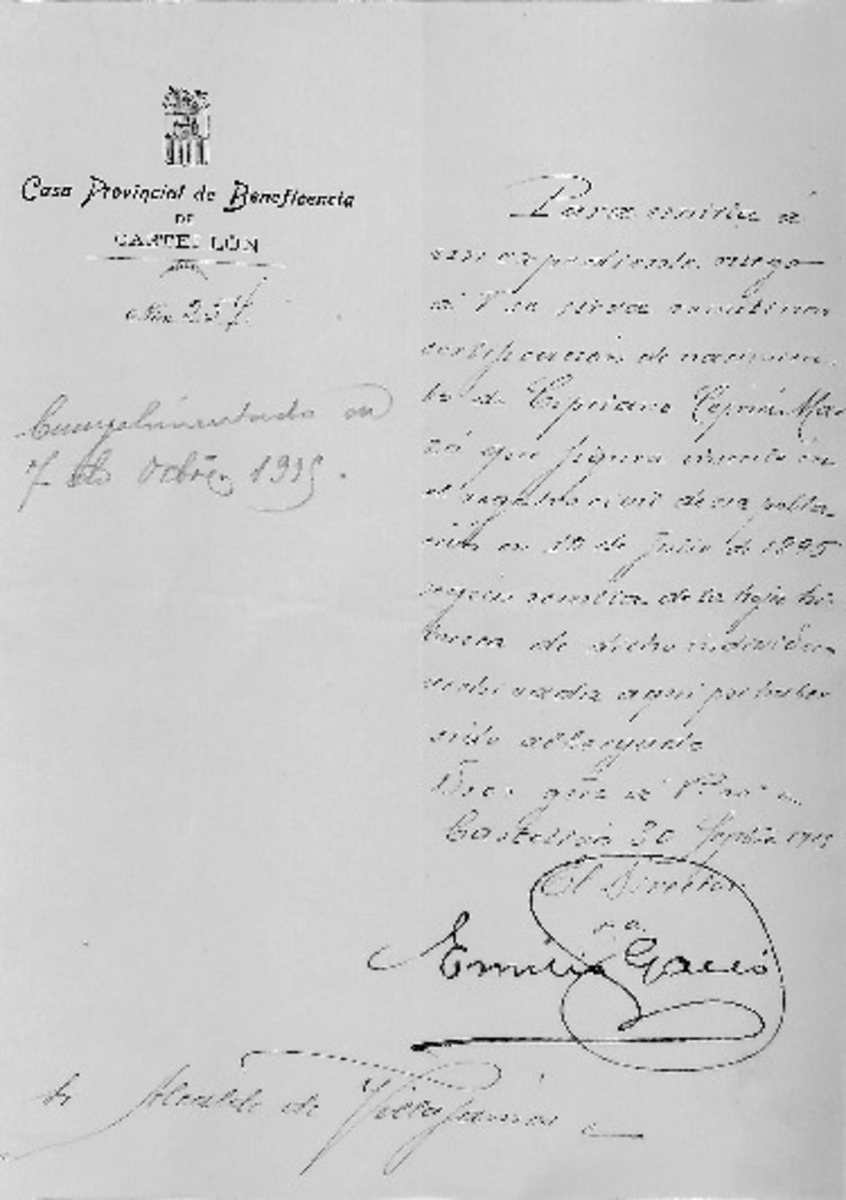 Casa Provincial de Beneficencia
DE
CASTELLÓN
Núm 257
Cumplimentado en
7 de Octbre, 1915.
Para unirla á
un expediente ruego
á V se sirva remitirme
certificación de nacimien-
to de Cipriano Mar-
zá que figura inscrito en
el registro civil de esa pobla-
ción en 10 de Julio de 1895
según resulta de la hoja his-
tórica de dicho individuo
archivada aquí por haber
sido albergado
Dios gue á V ms as
Castellón 30 Septbre 1915
El Director
P. A.
Emilio
Sr Alcalde de Villafamés